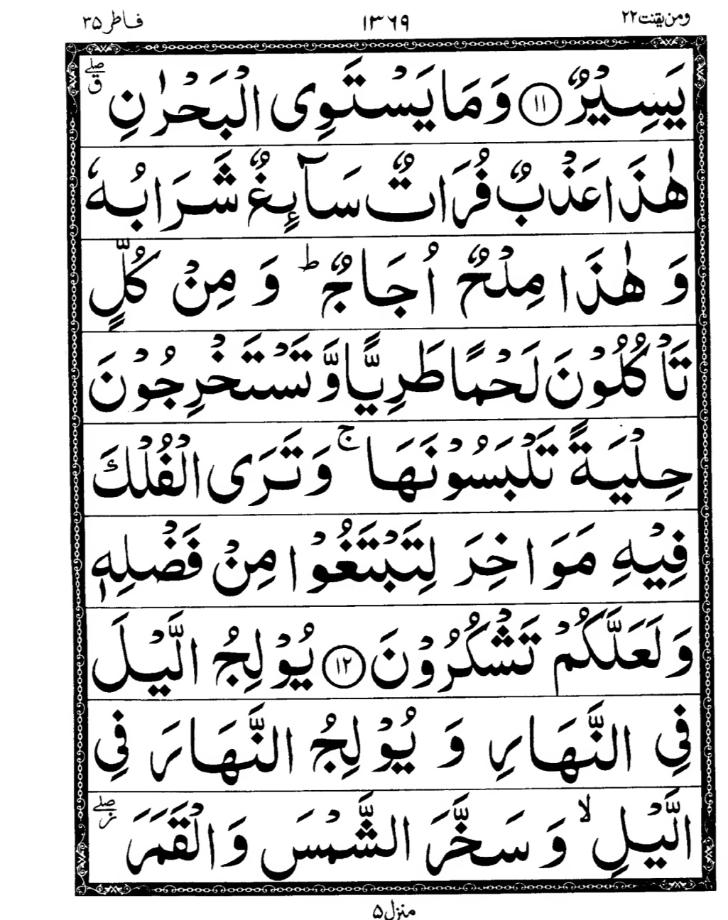 ومن یقنت ٢٢ ١٣٦٩ فاطر ٣٥
يَسِيْرٌ ١١ وَمَا يَسْتَوِى الْبَحْرٰنِ ۖق
هٰذَا عَذْبٌ فُرَاتٌ سَآئِغٌ شَرَابُهٗ
وَ هٰذَا مِلْحٌ اُجَاجٌ ؕ وَ مِنْ كُلٍّ
تَاْكُلُوْنَ لَحْمًا طَرِيًّا وَّ تَسْتَخْرِجُوْنَ
حِلْيَةً تَلْبَسُوْنَهَا ۚ وَ تَرَى الْفُلْكَ
فِيْهِ مَوَاخِرَ لِتَبْتَغُوْا مِنْ فَضْلِهٖ
وَ لَعَلَّكُمْ تَشْكُرُوْنَ ١٢ يُوْلِجُ الَّيْلَ
فِى النَّهَارِ وَ يُوْلِجُ النَّهَارَ فِى
الَّيْلِ ۙ وَ سَخَّرَ الشَّمْسَ وَ الْقَمَرَ ۖز
منزل ٥